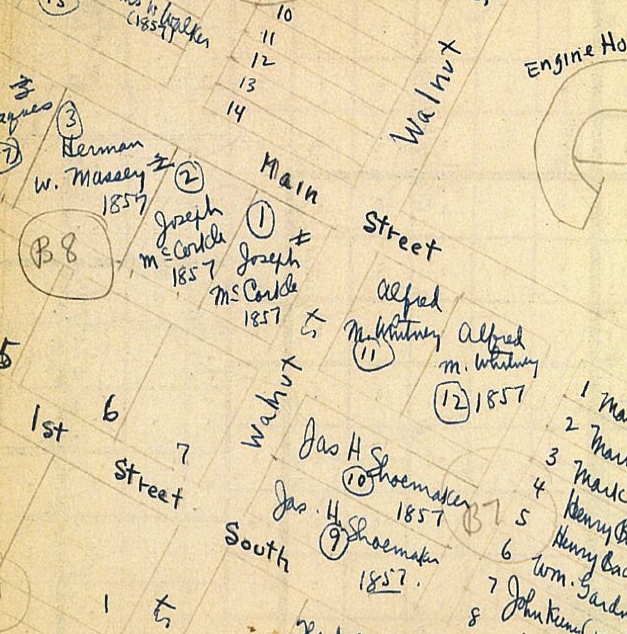 15
Walker
(1857)
10
11
12
13
14
Walnut
Engine Ho
3
Herman
W. Massey
1857
2
Joseph
McCorkle
1857
1
Joseph
McCorkle
1857
Main
Street
B 8
Alfred
M. Whitney
11
Alfred
M. Whitney
12 1857
5
6
7
1st
Street
South
Walnut St
Jas H Shoemaker
10
1857
Jas. H. Shoemaker
9
1857.
B7
1 Ma
2 Mar
3 Mark
4 Henry B
5 Henry Ba
6 Wm. Gardn
7 John
8
1
St